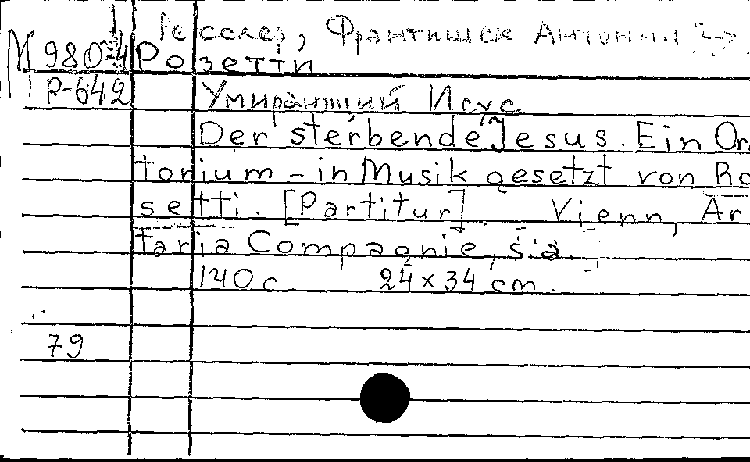 Ресслер, Франтишек Антонин →
М 980-4 Розетти
Р-642 Умирающий Исус
Der sterbende Jesus. Ein Ora
torium - in Musik gesetzt von Ro
setti. [Partitur]. Vienn, Ar
taria Compagnie, s.a.
140 с 24×34 cm.
79